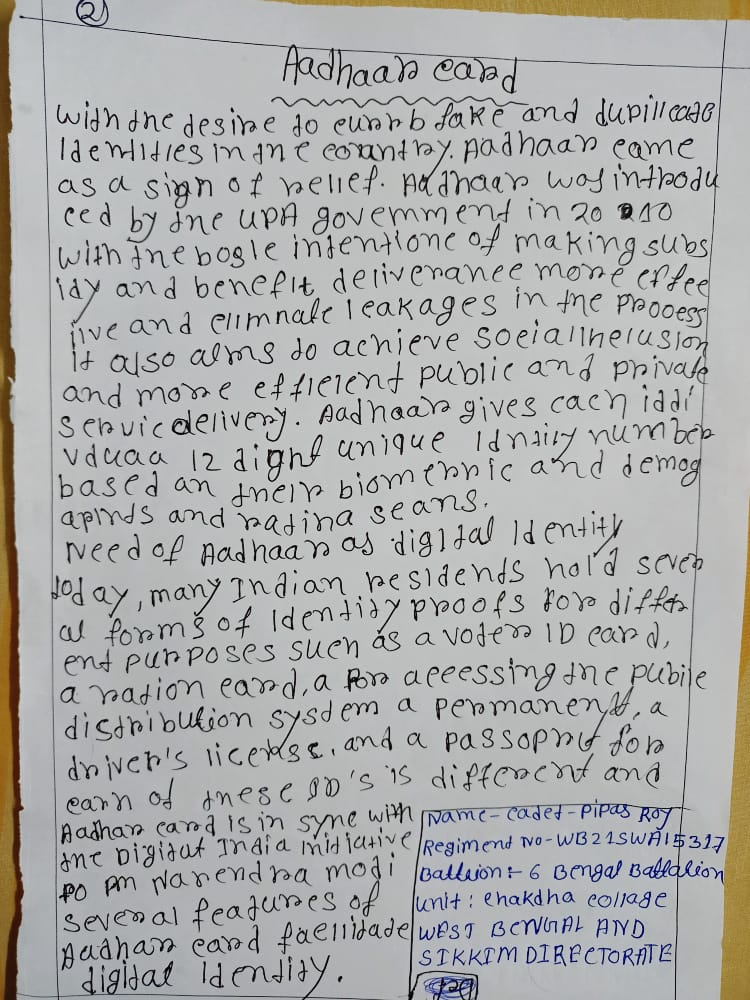 2
Aadhaar card
with the desire to currb fake and dupillcate
Identities in the corantry. Aadhaar came
as a sign of relief. Aadhaar was introdu
ced by the UPA govemment in 20 10
with the bogle intentione of making subs
idy and benefit deliverance more effec
tive and elimnate leakages in the process
it also aims to achieve social inclusion
and more efficient public and private
service delivery. Aadhaar gives each iddi
vduaa 12 dignt unique Idnaity number
based an their biometric and demog
apinds and ratina scans.
Need of Aadhaar as digital Identity
today, many Indian residends hold sever
al forms of Identity proofs for differ
ent purposes such as a voter ID card,
a ration card, a for accessing the pubile
distribution system a permanent, a
driver's license, and a passoprt for
earh of these ID's is different and
Aadhar card is in sync with
the Digital India initiative
po pm Narendra modi
several features of
Aadhar card facilidade
digital Identity.
Name - cadet - Pipas Roy
Regimend No - WB21SWA15317
Battlion :- 6 Bengal Battalion
unit : chakdha collage
WEST BENGAL AND
SIKKIM DIRECTORATE